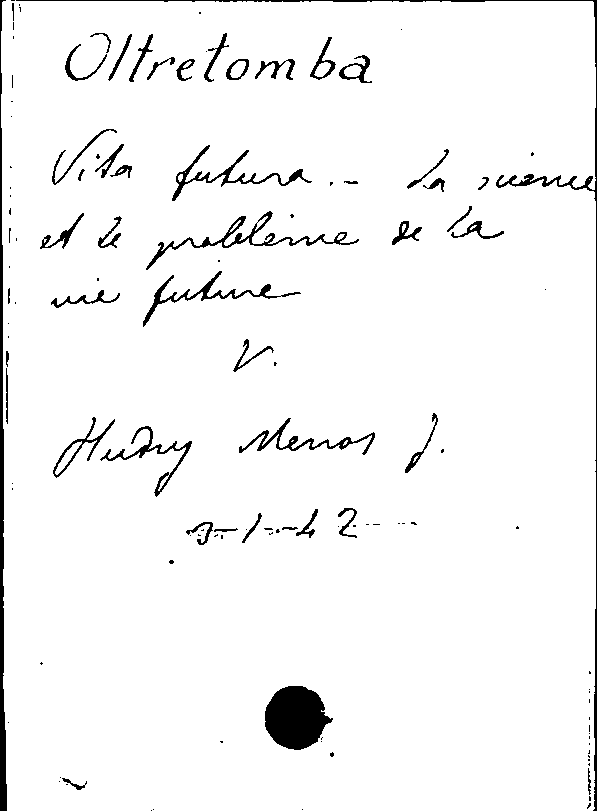 Oltretomba
Vita futura. - La science
et le problème de la
vie future
V.
Hudry Menos J.
3-1-42